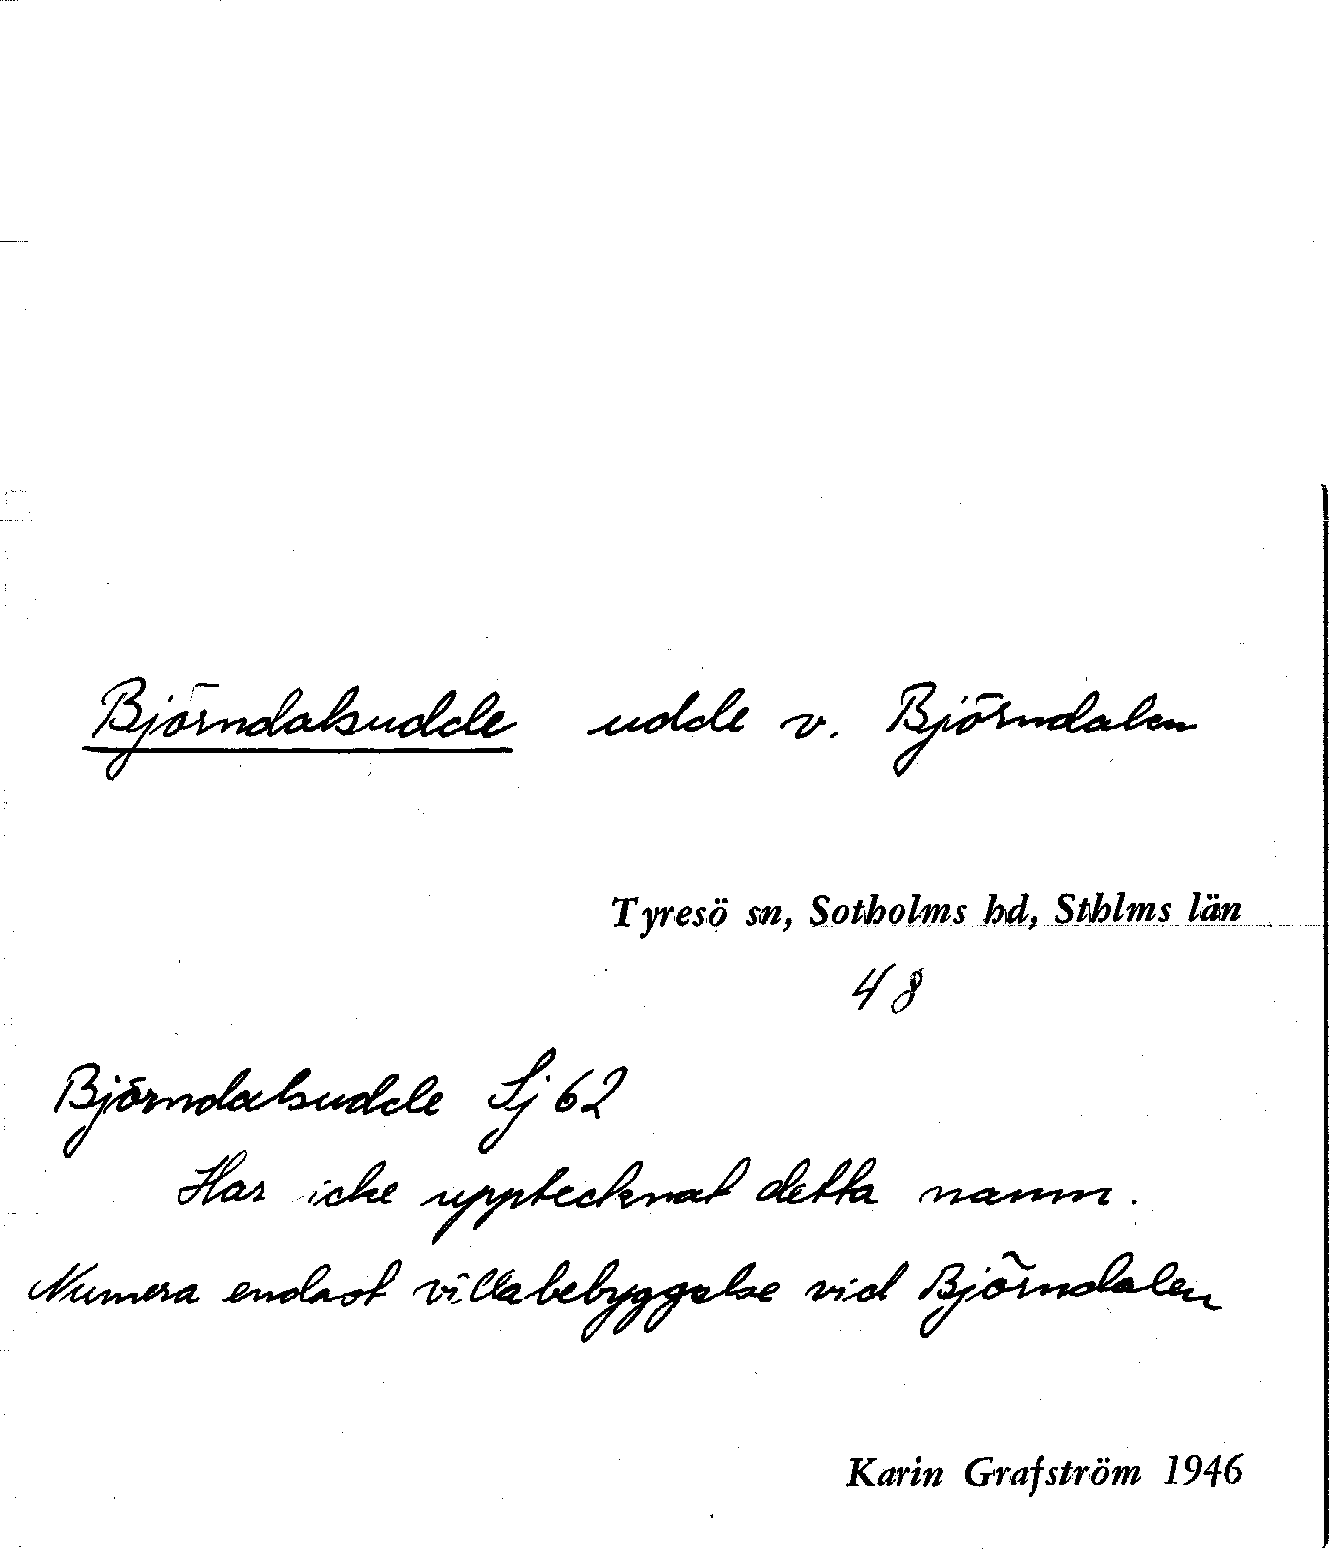 Björndalsudde udde v. Björndalen
Tyresö sn, Sotholms hd, Sthlms län
48
Björndalsudde Sj 62
Har icke upptecknat detta namn.
Numera endast villabebyggelse vid Björndalen
Karin Grafström 1946